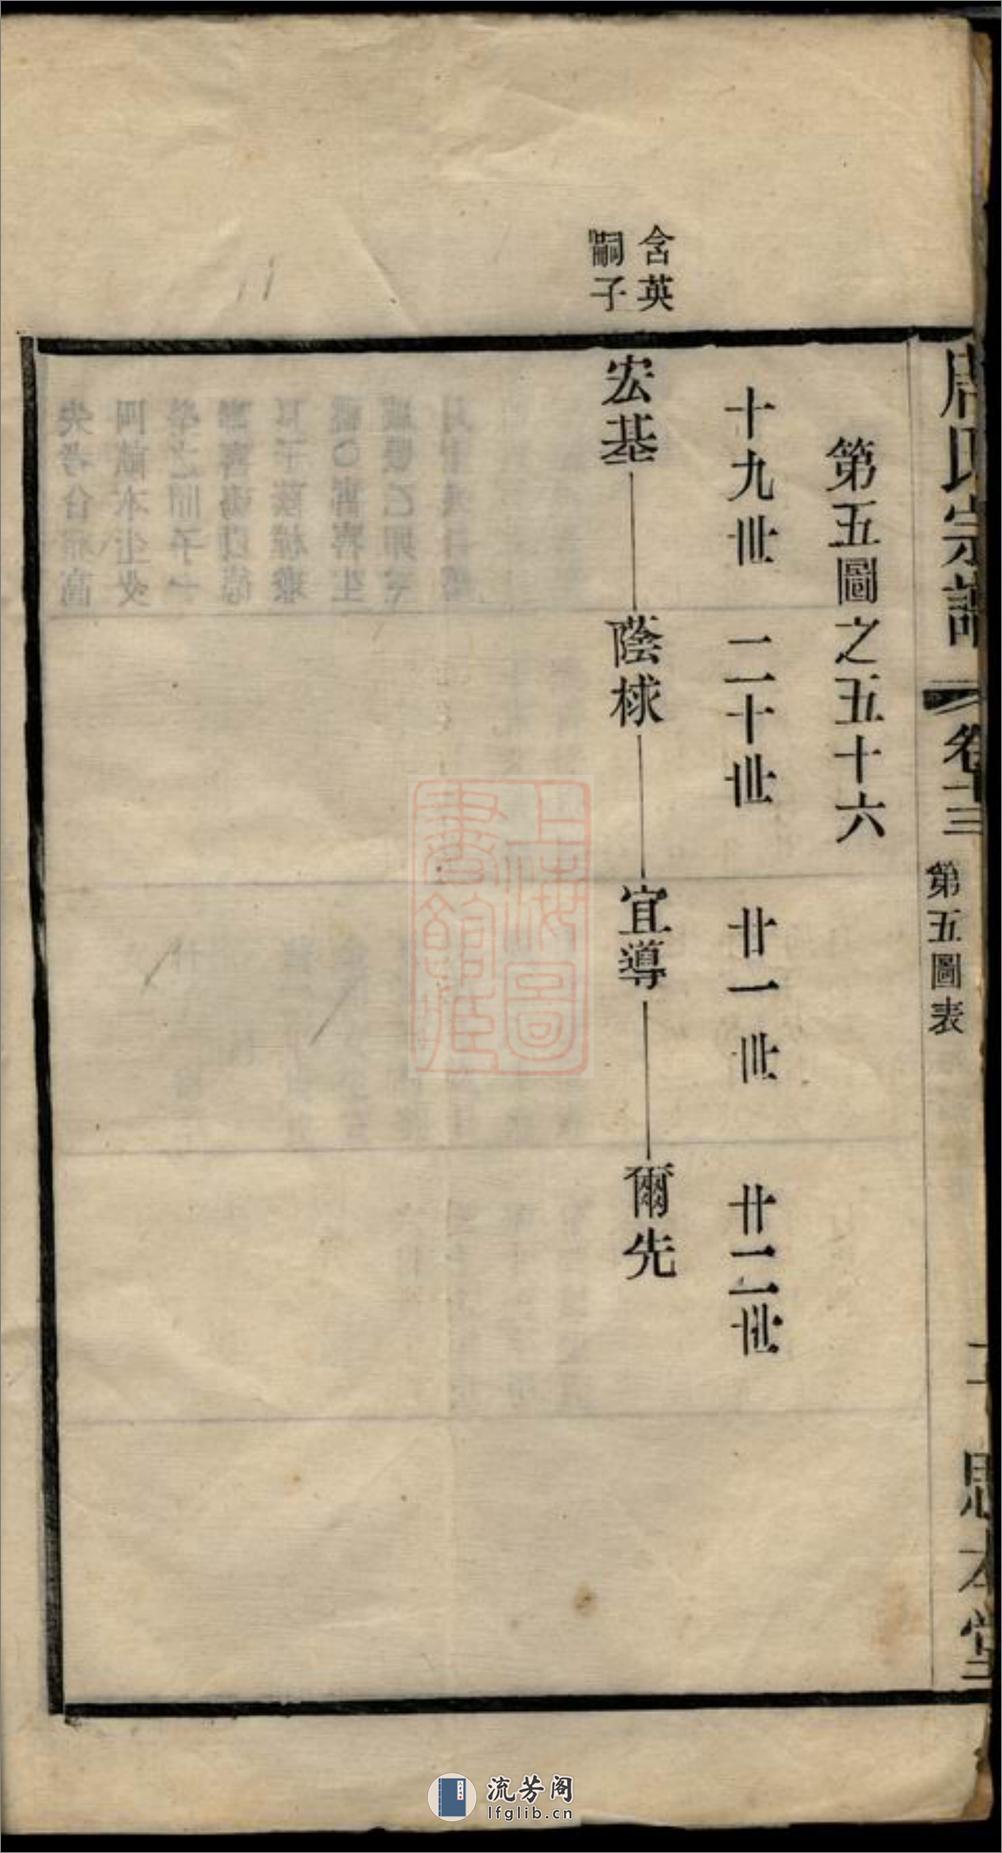 氏宗譜
卷十三
第五圖表
思本堂
第五圖之五十六
十九世 二十世 廿一世 廿二世
含英
嗣子
宏基 蔭梂 宜導 爾先
上海圖
書館藏
流芳阁
lfglib.cn